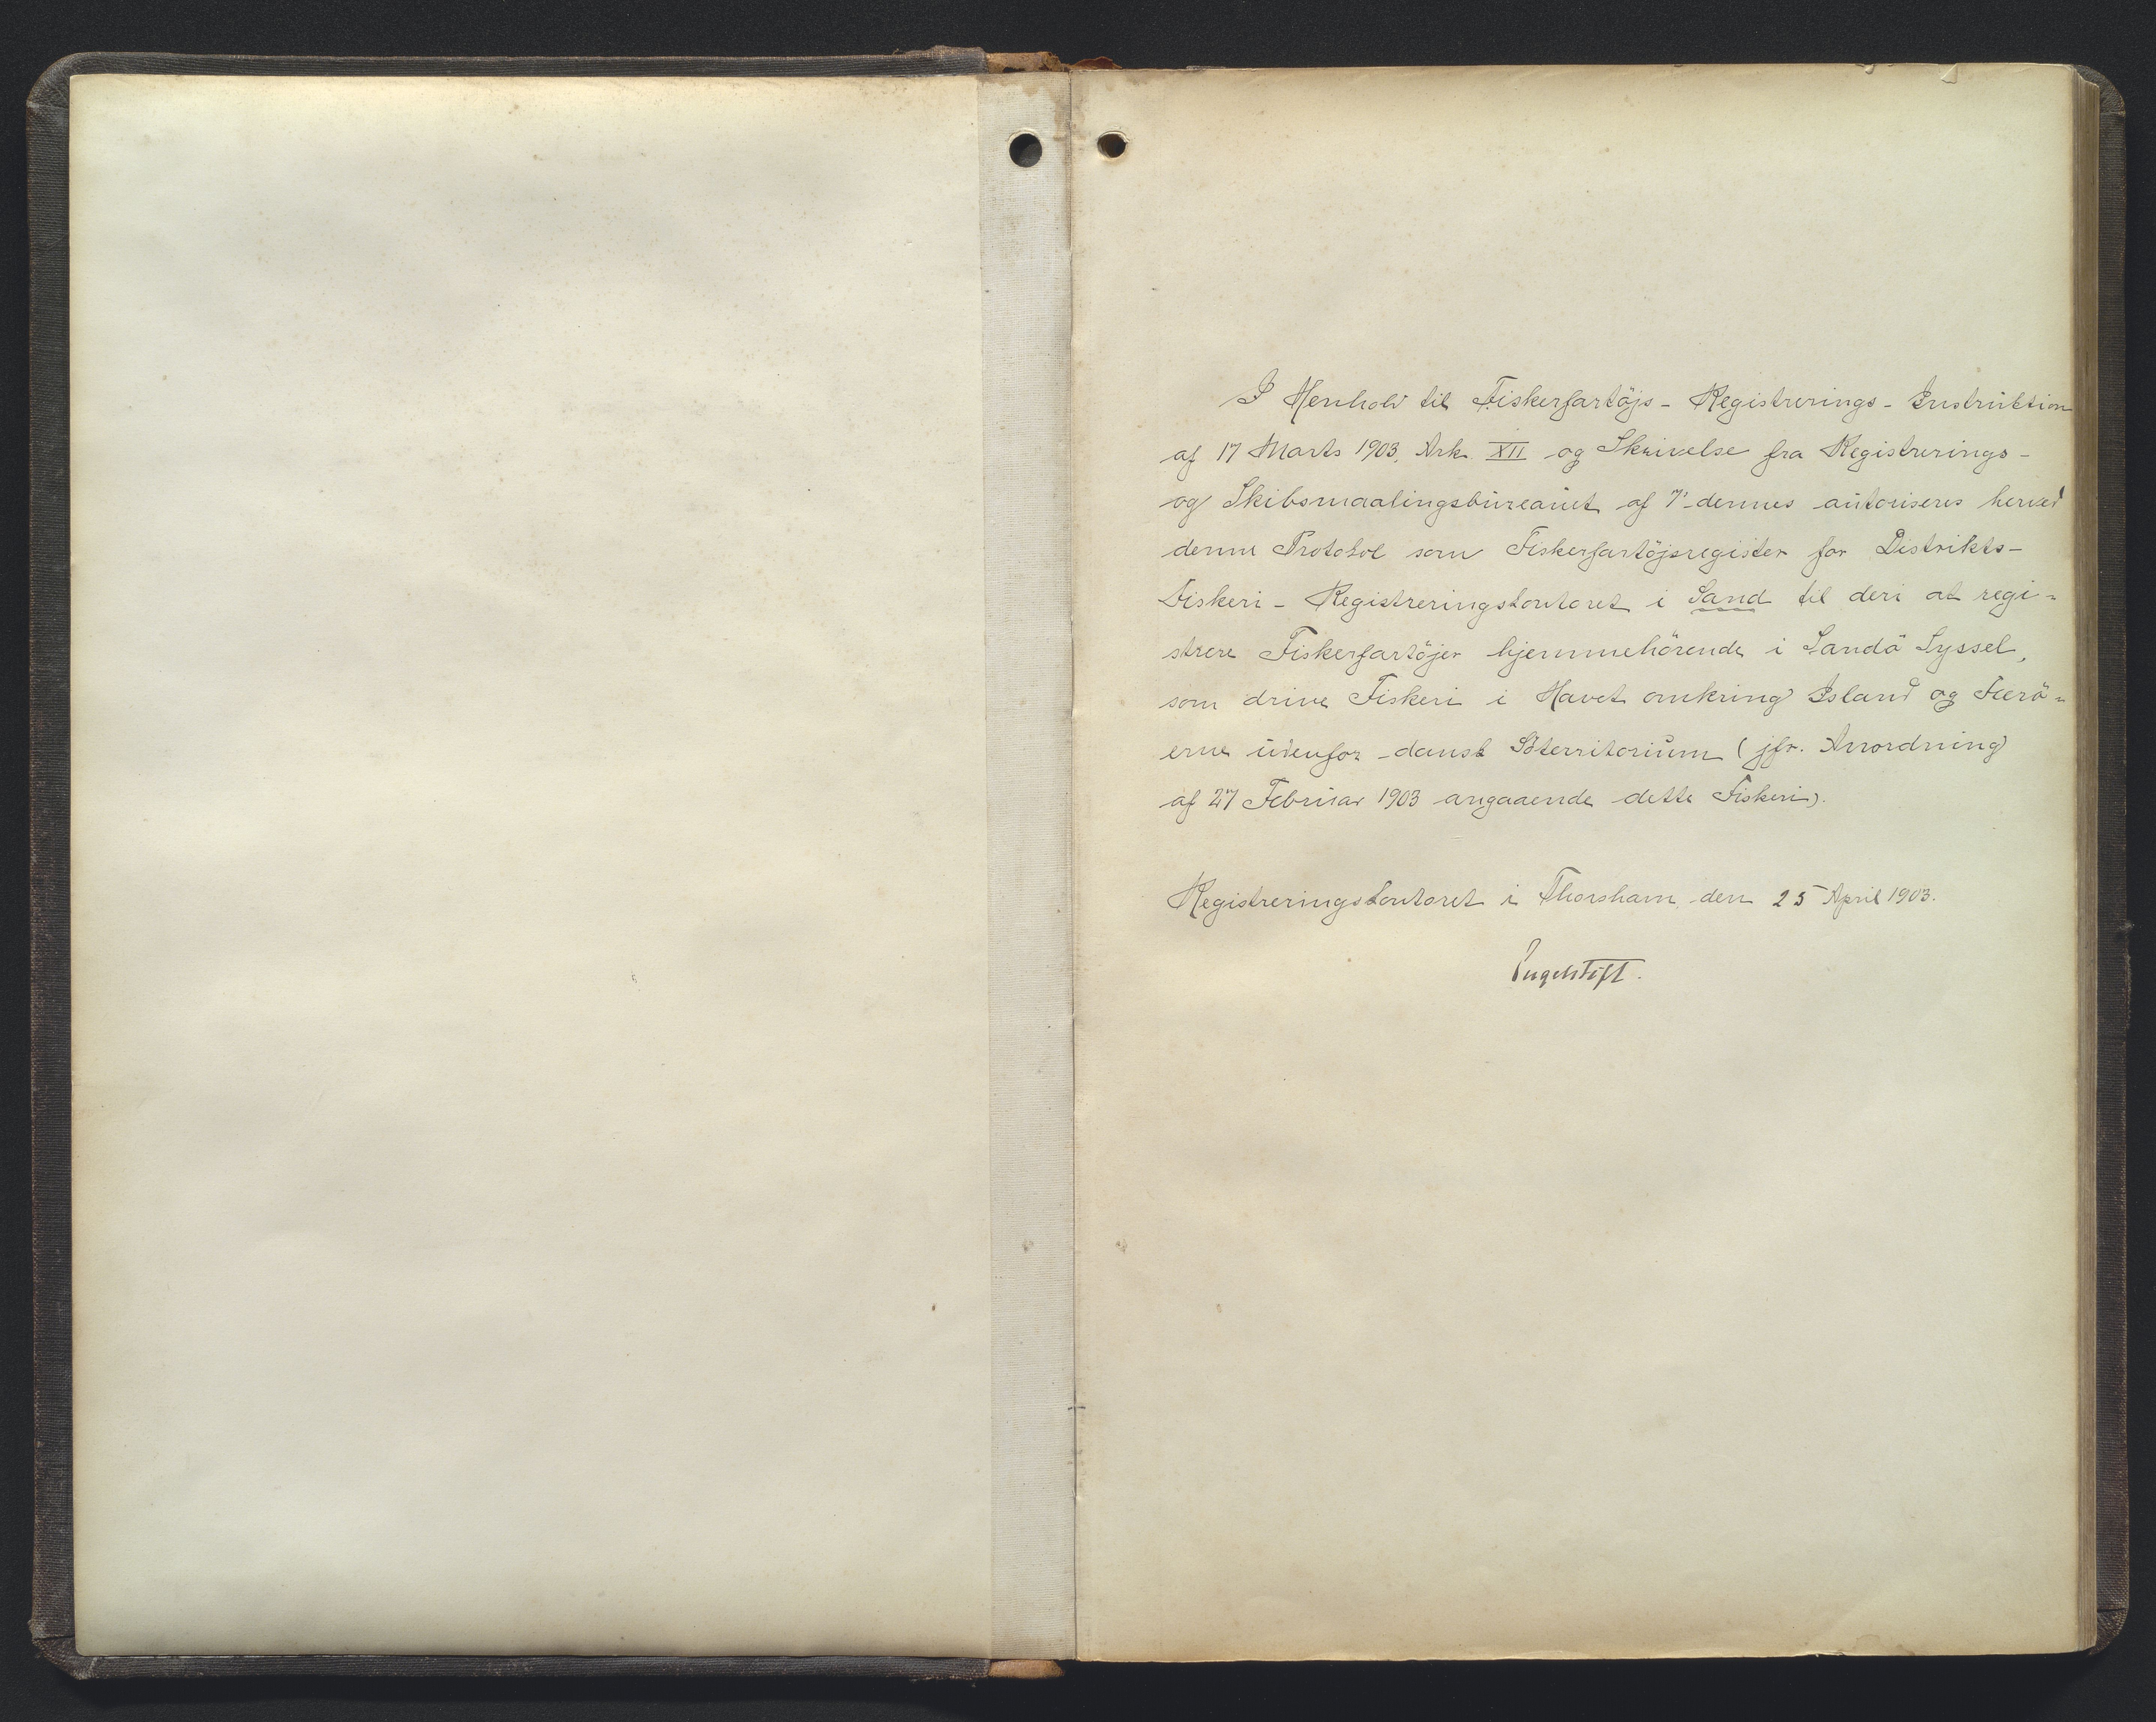 I Henhold til Fiskerfartöjs - Registrerings - Instruktion
af 17 Marts 1903, Ark. XII og Skrivelse fra Registrerings-
og Skibsmaalingsbureauet af 7' dennes autoriseres herved
denne Protokol som Fiskerfartöjsregister for Distrikts-
Fiskeri - Registreringskontoret i Sand til deri at regi-
strere Fiskerfartöjer hjemmehörende i Sandö Syssel,
som drive Fiskeri i Havet omkring Island og Færö-
erne udenfor dansk Söterritorium (jfr. Anordning
af 27 Februar 1903 angaaende dette Fiskeri).
Registreringskontoret i Thorshavn, den 25 April 1903.
Engelstoft.